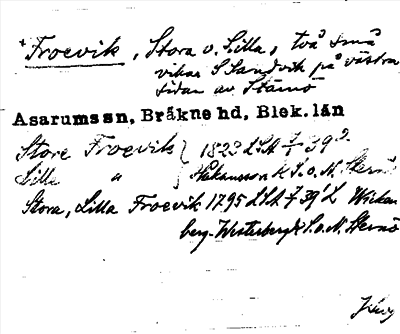 *Froevik, Stora o. Lilla, två små
vikar S Sandvik på västra
sidan av Stärnö
Asarums sn, Bräkne hd, Blek. län
Store Froevik } 1823 LSA
Lilla " } Håkansson k S. o. N. Sternö
Stora, Lilla Froevik 1795 LSA
berg-Westerberg k S. o. N. Sternö